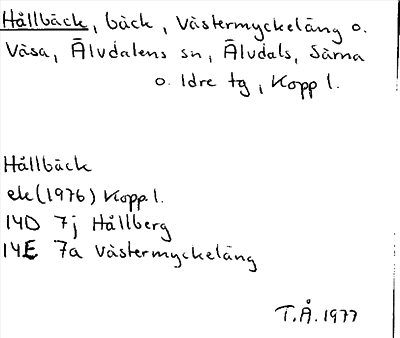 Hållbäck, bäck, Västermyckeläng o.
Våsa, Älvdalens sn, Älvdals, Särna
o. Idre tg, Kopp l.
Hållbäck
ek (1976) Kopp l.
14D 7j Hållberg
14E 7a Västermyckeläng
T.Å. 1977